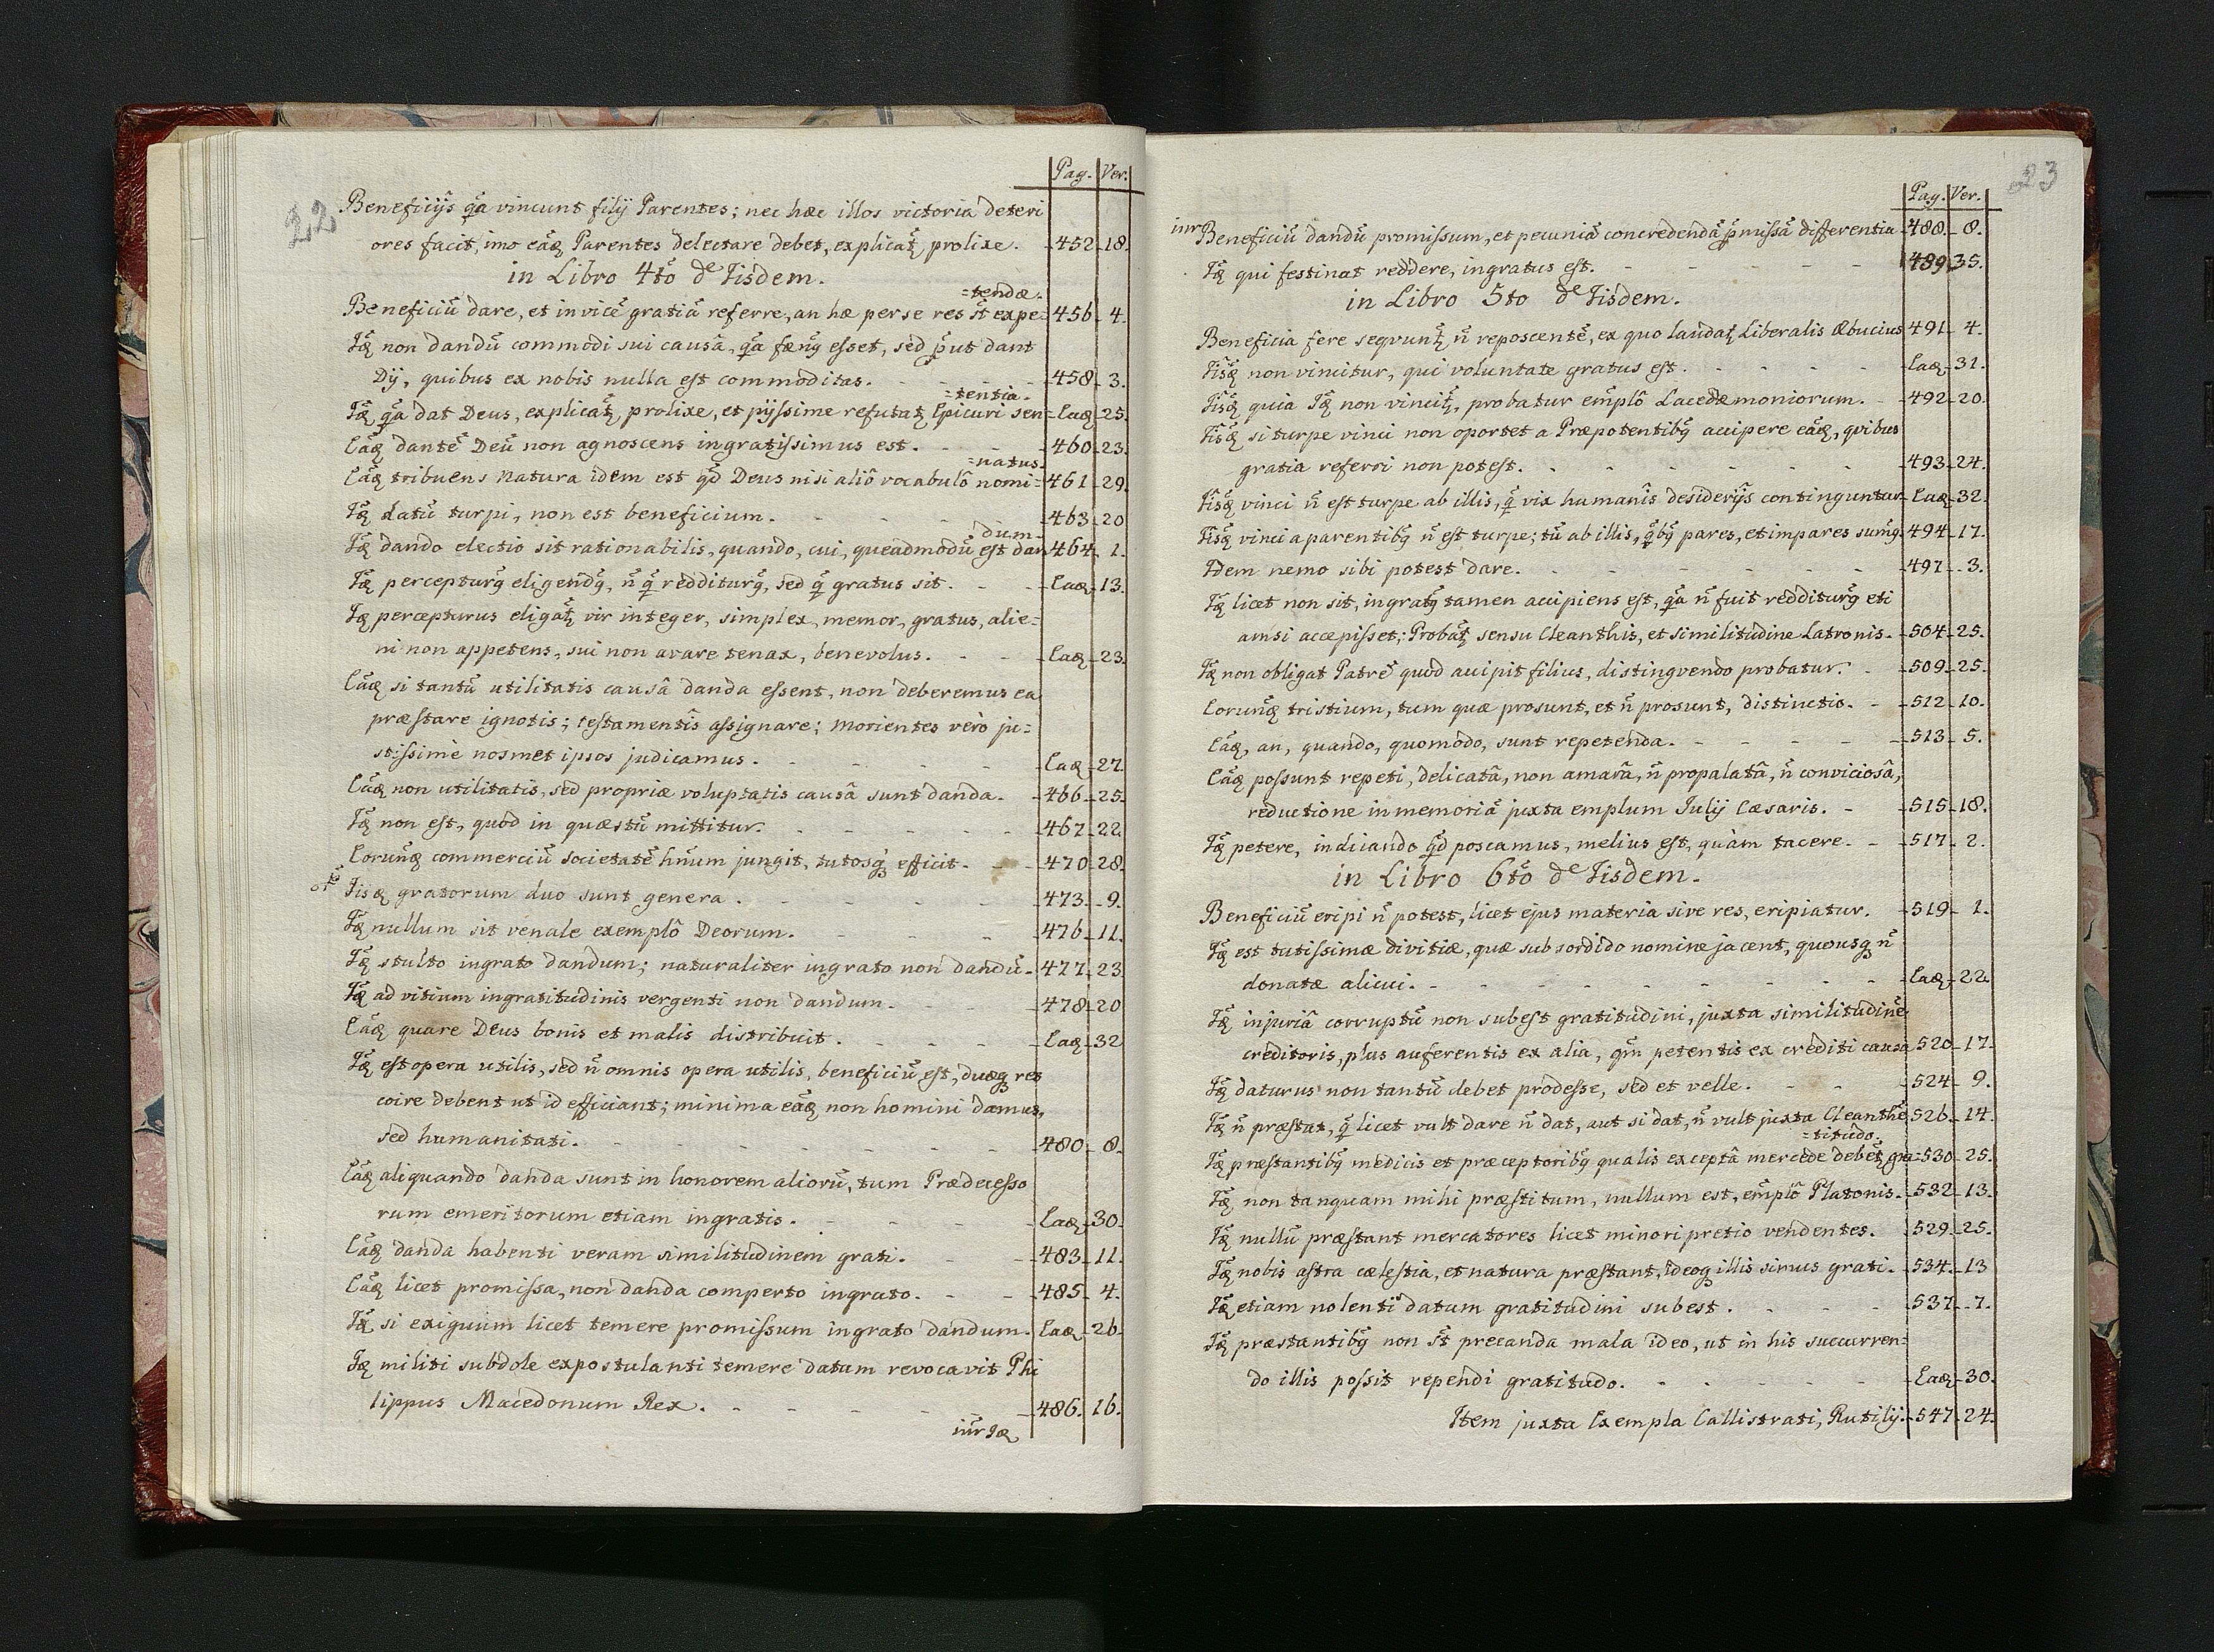 22
Pag. Ver.
Beneficijs qa vincunt filij Parentes; nec hæc illos victoria deteri
ores facit, imo eaq Parentes delectare debet, explicat, prolixe. 452 18.
in Libro 4tō de Iisdem.
=tendæ.
Beneficiū dare, et invicē gratiā referre, an hæ per se res st expe= 456 4.
Iq non dandū commodi sui causâ, qa fæng esset, sed put dant
Dij, quibus ex nobis nulla est commoditas. 458 3.
=tentia.
Iq qa dat Deus, explicat, prolixe, et pijssime refutat Epicuri sen= Eaq 25.
Eaq dantē Deū non agnoscens ingratissimus est. 460 23.
=natus.
Eaq tribuens Natura idem est qd Deus nisi aliô vocabulô nomi= 461 29.
Iq datū turpi, non est beneficium. 463 20
dum.
Iq dando electio sit rationabilis, quando, cui, queadmodū est dan 464 1.
Iq percepturg eligendg, n̄ q redditurg, sed q gratus sit. Eaq 13.
Iq percepturus eligat vir integer, simplex, memor, gratus, alie=
ni non appetens, sui non avare tenax, benevolus. Eaq 23.
Eaq si tantū utilitatis causâ danda essent, non deberemus ea
præstare ignotis; testamentîs assignare; Morientes verò ju=
stissimè nosmet ipsos judicamus. Eaq 27.
Eaq non utilitatis, sed propriæ voluptatis causâ sunt danda. 466 25.
Iq non est, quod in quæstū mittitur. 467 22
Eorunq commerciū societatē hnum jungit, tutosq efficit. 470 28.
Iisq gratorum duo sunt genera. 473 9.
Iq nullum sit venale exemplô Deorum. 476 11.
Iq stulto ingrato dandum; naturaliter ingrato non dandū. 477 23
Iq ad vitium ingratitudinis vergenti non dandum. 478 20
Eaq quare Deus bonis et malis distribuit. Eaq 32
Iq est opera utilis, sed n̄ omnis opera utilis, beneficiū est, duæq res
coire debent ut id efficiant; minima eaq non homini damus,
sed humanitati. 480 8.
Eaq aliquando danda sunt in honorem aliorū, tum Prædecesso
rum emeritorum etiam ingratis. Eaq 30.
Eaq danda habenti veram similitudinem grati. 483 11.
Eaq licet promissa, non danda comperto ingrato. 485 4.
Iq si exiguum licet temere promissum ingrato dandum. Eaq 26.
Iq militi subdole expostulanti temere datum revocavit Phi
lippus Macedonum Rex. 486. 16.
inr Iq
23
Pag. Ver.
inr Beneficiū dandū promissum, et pecuniā concredendā pmissā differentia 488. 8.
Iq qui festinat reddere, ingratus est. 489 35.
in Libro 5to de Iisdem.
Beneficia fere seqvunt n̄ reposcentē, ex quo laudat Liberalis Æbucius 491 4.
Iisq non vincitur, qui voluntate gratus est. Eaq 31.
Iisq quia Iq non vincit, probatur emplô Lacedæmoniorum. 492 20.
Iisq si turpe vinci non oportet a Præpotentibg accipere eaq, qvibus
gratia referri non potest. 493 24.
Iisq vinci n̄ est turpe ab illis, q vix humanîs desiderijs continguntur Eaq 32.
Iisq vinci a parentibg n̄ est turpe; tū ab illis, qbg pares, et impares sumg. 494 17.
Idem nemo sibi potest dare. 497 3.
Iq licet non sit, ingratg tamen accipiens est, qa n̄ fuit redditurg eti
amsi accepisset; Probat sensu Cleanthis, et similitudine Latronis. 504 25.
Iq non obligat Patrē quod accipit filius, distingvendo probatur. 509 25.
Eorunq tristium, tum quæ prosunt, et n̄ prosunt, distinctio. 512 10.
Eaq, an, quando, quomodo, sunt repetenda. 513 5.
Eaq possunt repeti, delicatâ, non amarâ, n̄ propalatâ, n̄ conviciosâ,
reductione in memoriā juxta emplum Julij Cæsaris. 515 18.
Iq petere, indicando qd poscamus, melius est, quàm tacere. 517 2.
in Libro 6tō de Iisdem.
Beneficiū eripi n̄ potest, licet ejus materia sive res, eripiatur. 519 1.
Iq est tutissimæ divitiæ, quæ sub sordido nomine jacent, quousq n̄
donatæ alicui. Eaq 22.
Iq injuriâ corruptū non subest gratitudini, juxta similitudinē
creditoris, plus auferentis ex alia, qm petentis ex crediti causa 520 17.
Iq daturus non tantū debet prodesse, sed et velle. 524 9.
Iq n̄ præstat, q licet vult dare n̄ dat, aut si dat, n̄ vult juxta Cleanthē 526 14.
=titudo.
Iq præstantibg medicis et præceptoribg qualis exceptâ mercede debet, gra= 530 25.
Iq non tanquam mihi præstitum, nullum est, emplô Platonis. 532 13.
Iq nullū præstant mercatores licet minori pretio vendentes. 529 25.
Iq nobis astra cælestia, et natura præstant, ideoq illis simus grati. 534. 13
Iq etiam nolenti datum gratitudini subest. 537 7.
Iq præstantibg non st precanda mala ideo, ut in his succurren=
do illis possit rependi gratitudo. Eaq 30.
Item juxta Exempla Callistrati, Rutilij. 547 24.